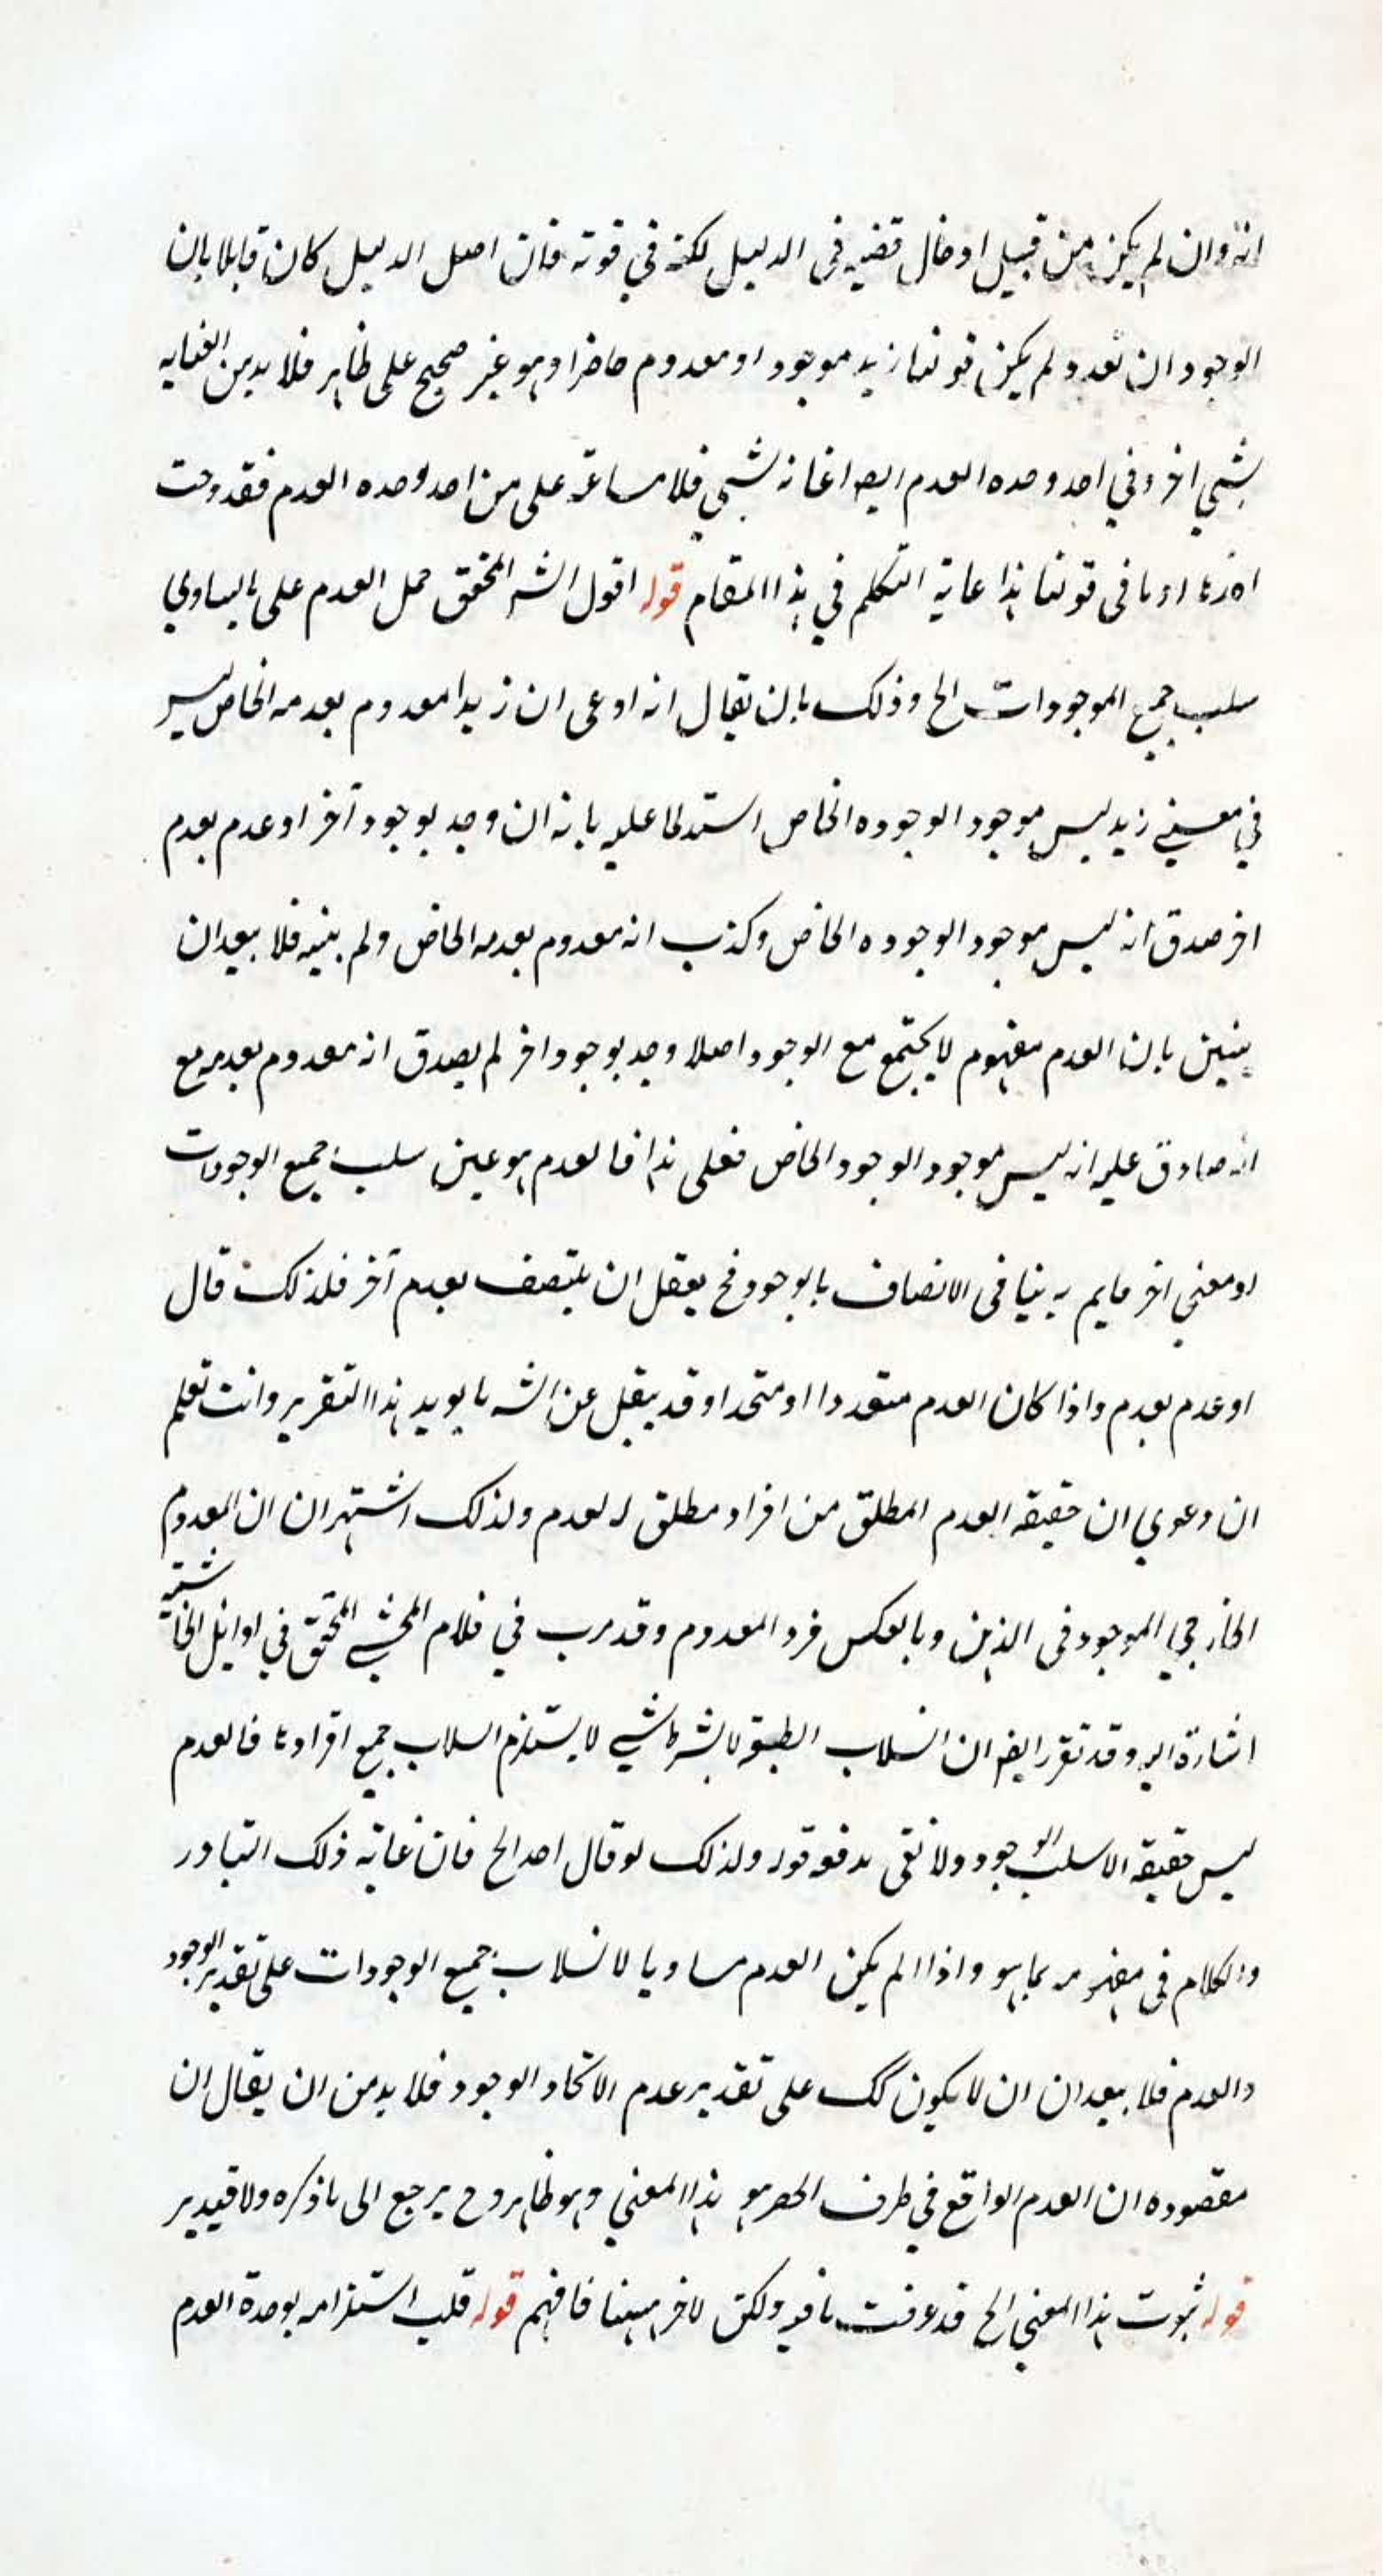 انه وان لم يكن من قبيل ادخال قضيه فى الدليل لكنه في قوته فان اصل الدليل كان قايلا بان
الوجود ان تعدد لم يكن قولنا زيد موجود او معدوم حاضرا وهو غير صحيح على ظاهر فلا بد من العنايه
بشي اخر وفي احد وحده العدم ايض اغانه بشي فلا مساعه على من احد وحده العدم فقد وحت
ما فى قولنا هذا غاية التكلم في هذا المقام قوله اقول الشه المحقق حمل العدم على ما يساوي
سلب جميع الموجودات الخ وذلك بان يقال انه ادعى ان زيدا معدوم بعدمه الخاص ليس
في معنى زيد ليس موجود الوجوده الخاص استدلا عليه بانه ان وجد بوجود آخر او عدم بعدم
اخر صدق انه ليس موجود الوجوده الخاص وكذب انه معدوم بعدمه الخاص ولم يبنيه فلا يبعد ان
يبين بان العدم مفهوم لا يجتمع مع الوجود اصلا وجد بوجود اخر لم يصدق انه معدوم بعدمه مع
انه صادق عليه انه ليس موجود الوجود الخاص فعلى هذا فالعدم هو عين سلب جميع الوجودات
او معني اخر مايم به ينافى الاتصاف بالوجود فح يعقل ان يتصف بعدم آخر فلذلك قال
او عدم بعدم واذا كان العدم متعددا او متحدا وقد ينقل عن الشه ما يويد هذا التقرير وانت تعلم
ان دعوي ان حقيقه العدم المطلق من افراد مطلق العدم ولذلك اشتهر ان ان المعدوم
الخارجي الموجود فى الذهن وبالعكس فرد المعدوم وقد مرت في كلام المحشي المحقق في اوائل الحاشية
اشارة اليه وقد تقرر ايض ان انسلاب الطبيعة لا بشرط شي لا يستلزم انسلاب جميع افرادها فالعدم
ليس حقيقه الا سلب الوجود ولا نقى بدفعه قوله ولذلك لو قال احد الخ فان غاية ذلك التبادر
والكلام فى مفهومه بما هو واذا لم يكن العدم مساويا لانسلاب جميع الوجودات على تقدير الوجود
والعدم فلا يبعد ان ان لا يكون كك على تقدير عدم الاتحاد الوجود فلا بد من ان يقال ان
مقصوده ان العدم الواقع في طرف الحصر هو هذا المعني وهو ظاهر وح يرجع الى ما ذكره ولا قيد ير
قوله ثبوت هذا المعني الخ قد عرفت ما فيه ولكن لاخر هيهنا فافهم قوله قلت استلزامه بوحدة العدم